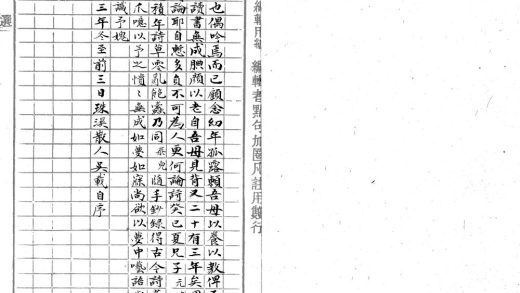 編輯者點句加圈凡註用雙行
也偶吟焉而已顧念幼年孤露賴吾母以養以教俾
讀書無成腆顏以老自吾母見背又二十有三年矣
論耶自慙多負不可為人更何論詩癸巳夏兄子元
積年詩草零亂飽蠹乃同兒隨手鈔錄得古今詩
木噫以予之憒憒無成如夢如寐尚欲以夢中囈語
識予媿
三年冬至前三日珠溪散人吳載自序
選